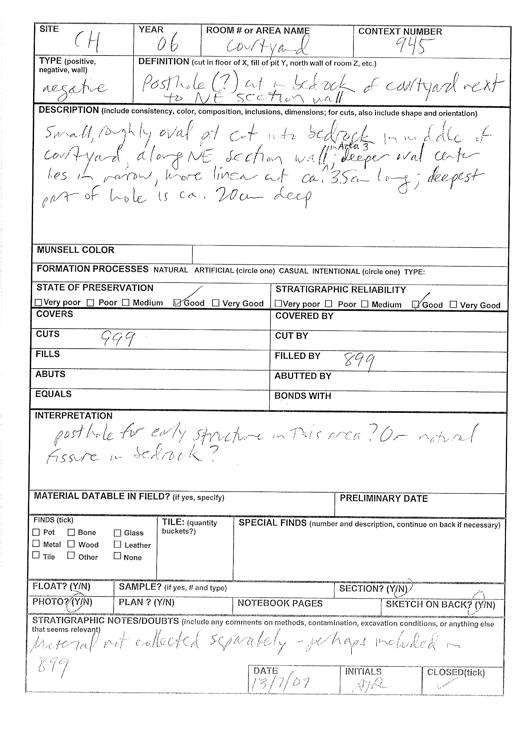 SITE CH YEAR 06 ROOM # or AREA NAME Courtyard CONTEXT NUMBER 945
TYPE (positive, negative, wall) negative
DEFINITION (cut in floor of X, fill of pit Y, north wall of room Z, etc.)
Posthole (?) cut in bedrock of courtyard next
to NE section wall
DESCRIPTION (include consistency, color, composition, inclusions, dimensions; for cuts, also include shape and orientation)
Small, roughly oval pit cut into bedrock in middle of
in Area 3
courtyard, along NE section wall; deeper oval center
lies in narrow, more linear cut ca. 35cm long; deepest
part of hole is ca. 20cm deep
MUNSELL COLOR
FORMATION PROCESSES NATURAL ARTIFICIAL (circle one) CASUAL INTENTIONAL (circle one) TYPE:
STATE OF PRESERVATION
Very poor Poor Medium Good Very Good
STRATIGRAPHIC RELIABILITY
Very poor Poor Medium Good Very Good
COVERS COVERED BY
CUTS 999 CUT BY
FILLS FILLED BY 899
ABUTS ABUTTED BY
EQUALS BONDS WITH
INTERPRETATION
posthole for early structure in this area? Or natural
fissure in bedrock?
MATERIAL DATABLE IN FIELD? (if yes, specify) PRELIMINARY DATE
FINDS (tick)
Pot Bone Glass
Metal Wood Leather
Tile Other None
TILE: (quantity
buckets?)
SPECIAL FINDS (number and description, continue on back if necessary)
FLOAT? (Y/N) SAMPLE? (if yes, # and type) SECTION? (Y/N)
PHOTO? (Y/N) PLAN ? (Y/N) NOTEBOOK PAGES SKETCH ON BACK? (Y/N)
STRATIGRAPHIC NOTES/DOUBTS (include any comments on methods, contamination, excavation conditions, or anything else
that seems relevant)
Material not collected separately - perhaps included in
899
DATE INITIALS CLOSED(tick)
13/7/07